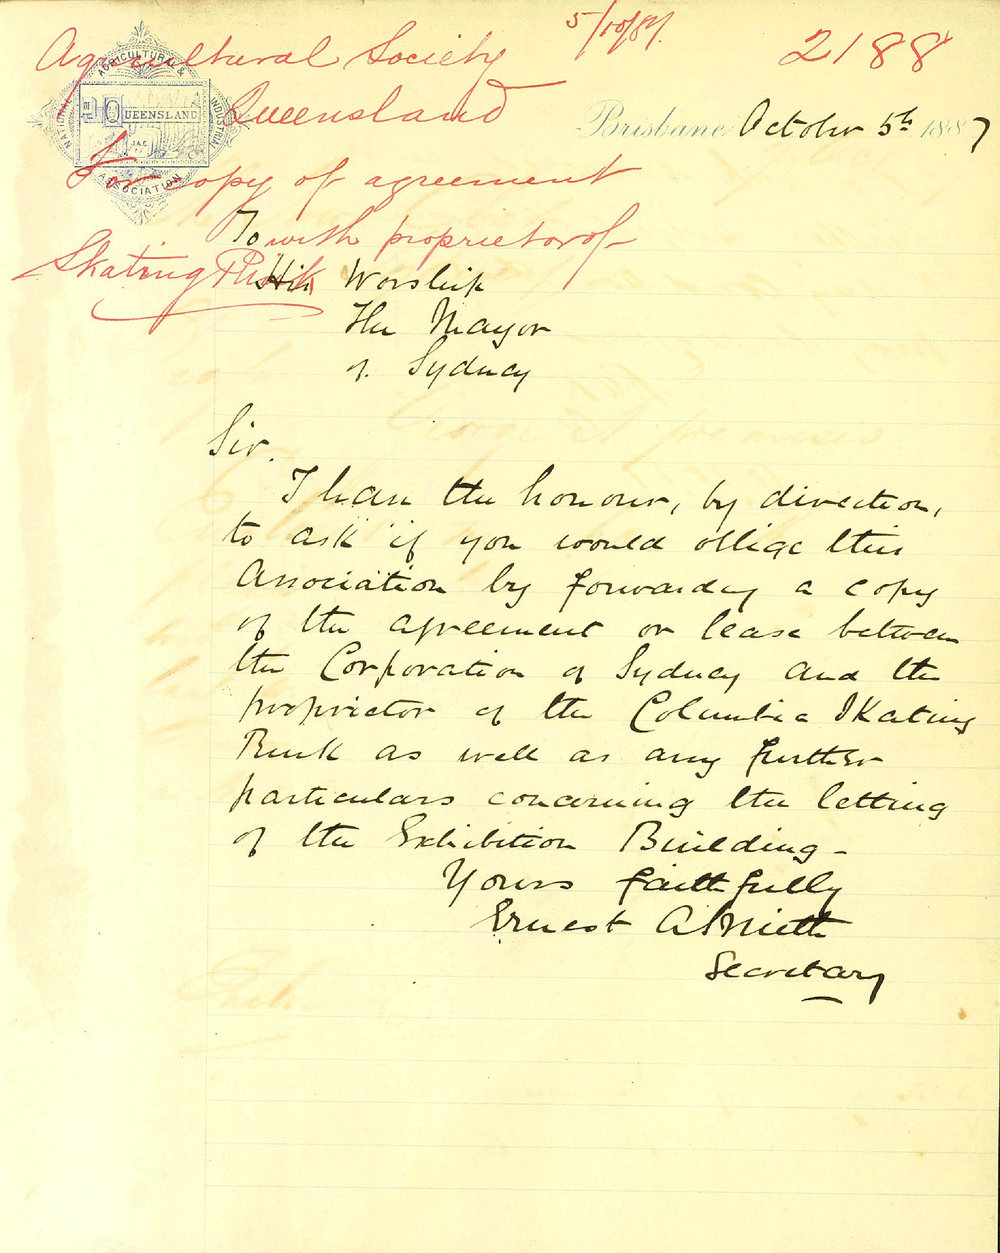 5/10/87.
2188
Agricultural Society
Queensland
For copy of agreement
with proprietor of
Skating Rink
NATIONAL AGRICULTURAL & INDUSTRIAL ASSOCIATION
QUEENSLAND
Brisbane October 5th 1887
To
His Worship
The Mayor
of Sydney
Sir.
I have the honour, by direction,
to ask if you would oblige this
Association by forwarding a copy
of the agreement or lease between
the Corporation of Sydney and the
proprietor of the Columbia Skating
Rink as well as any further
particulars concerning the letting
of the Exhibition Building -
Yours faithfully
Ernest A Smith
Secretary